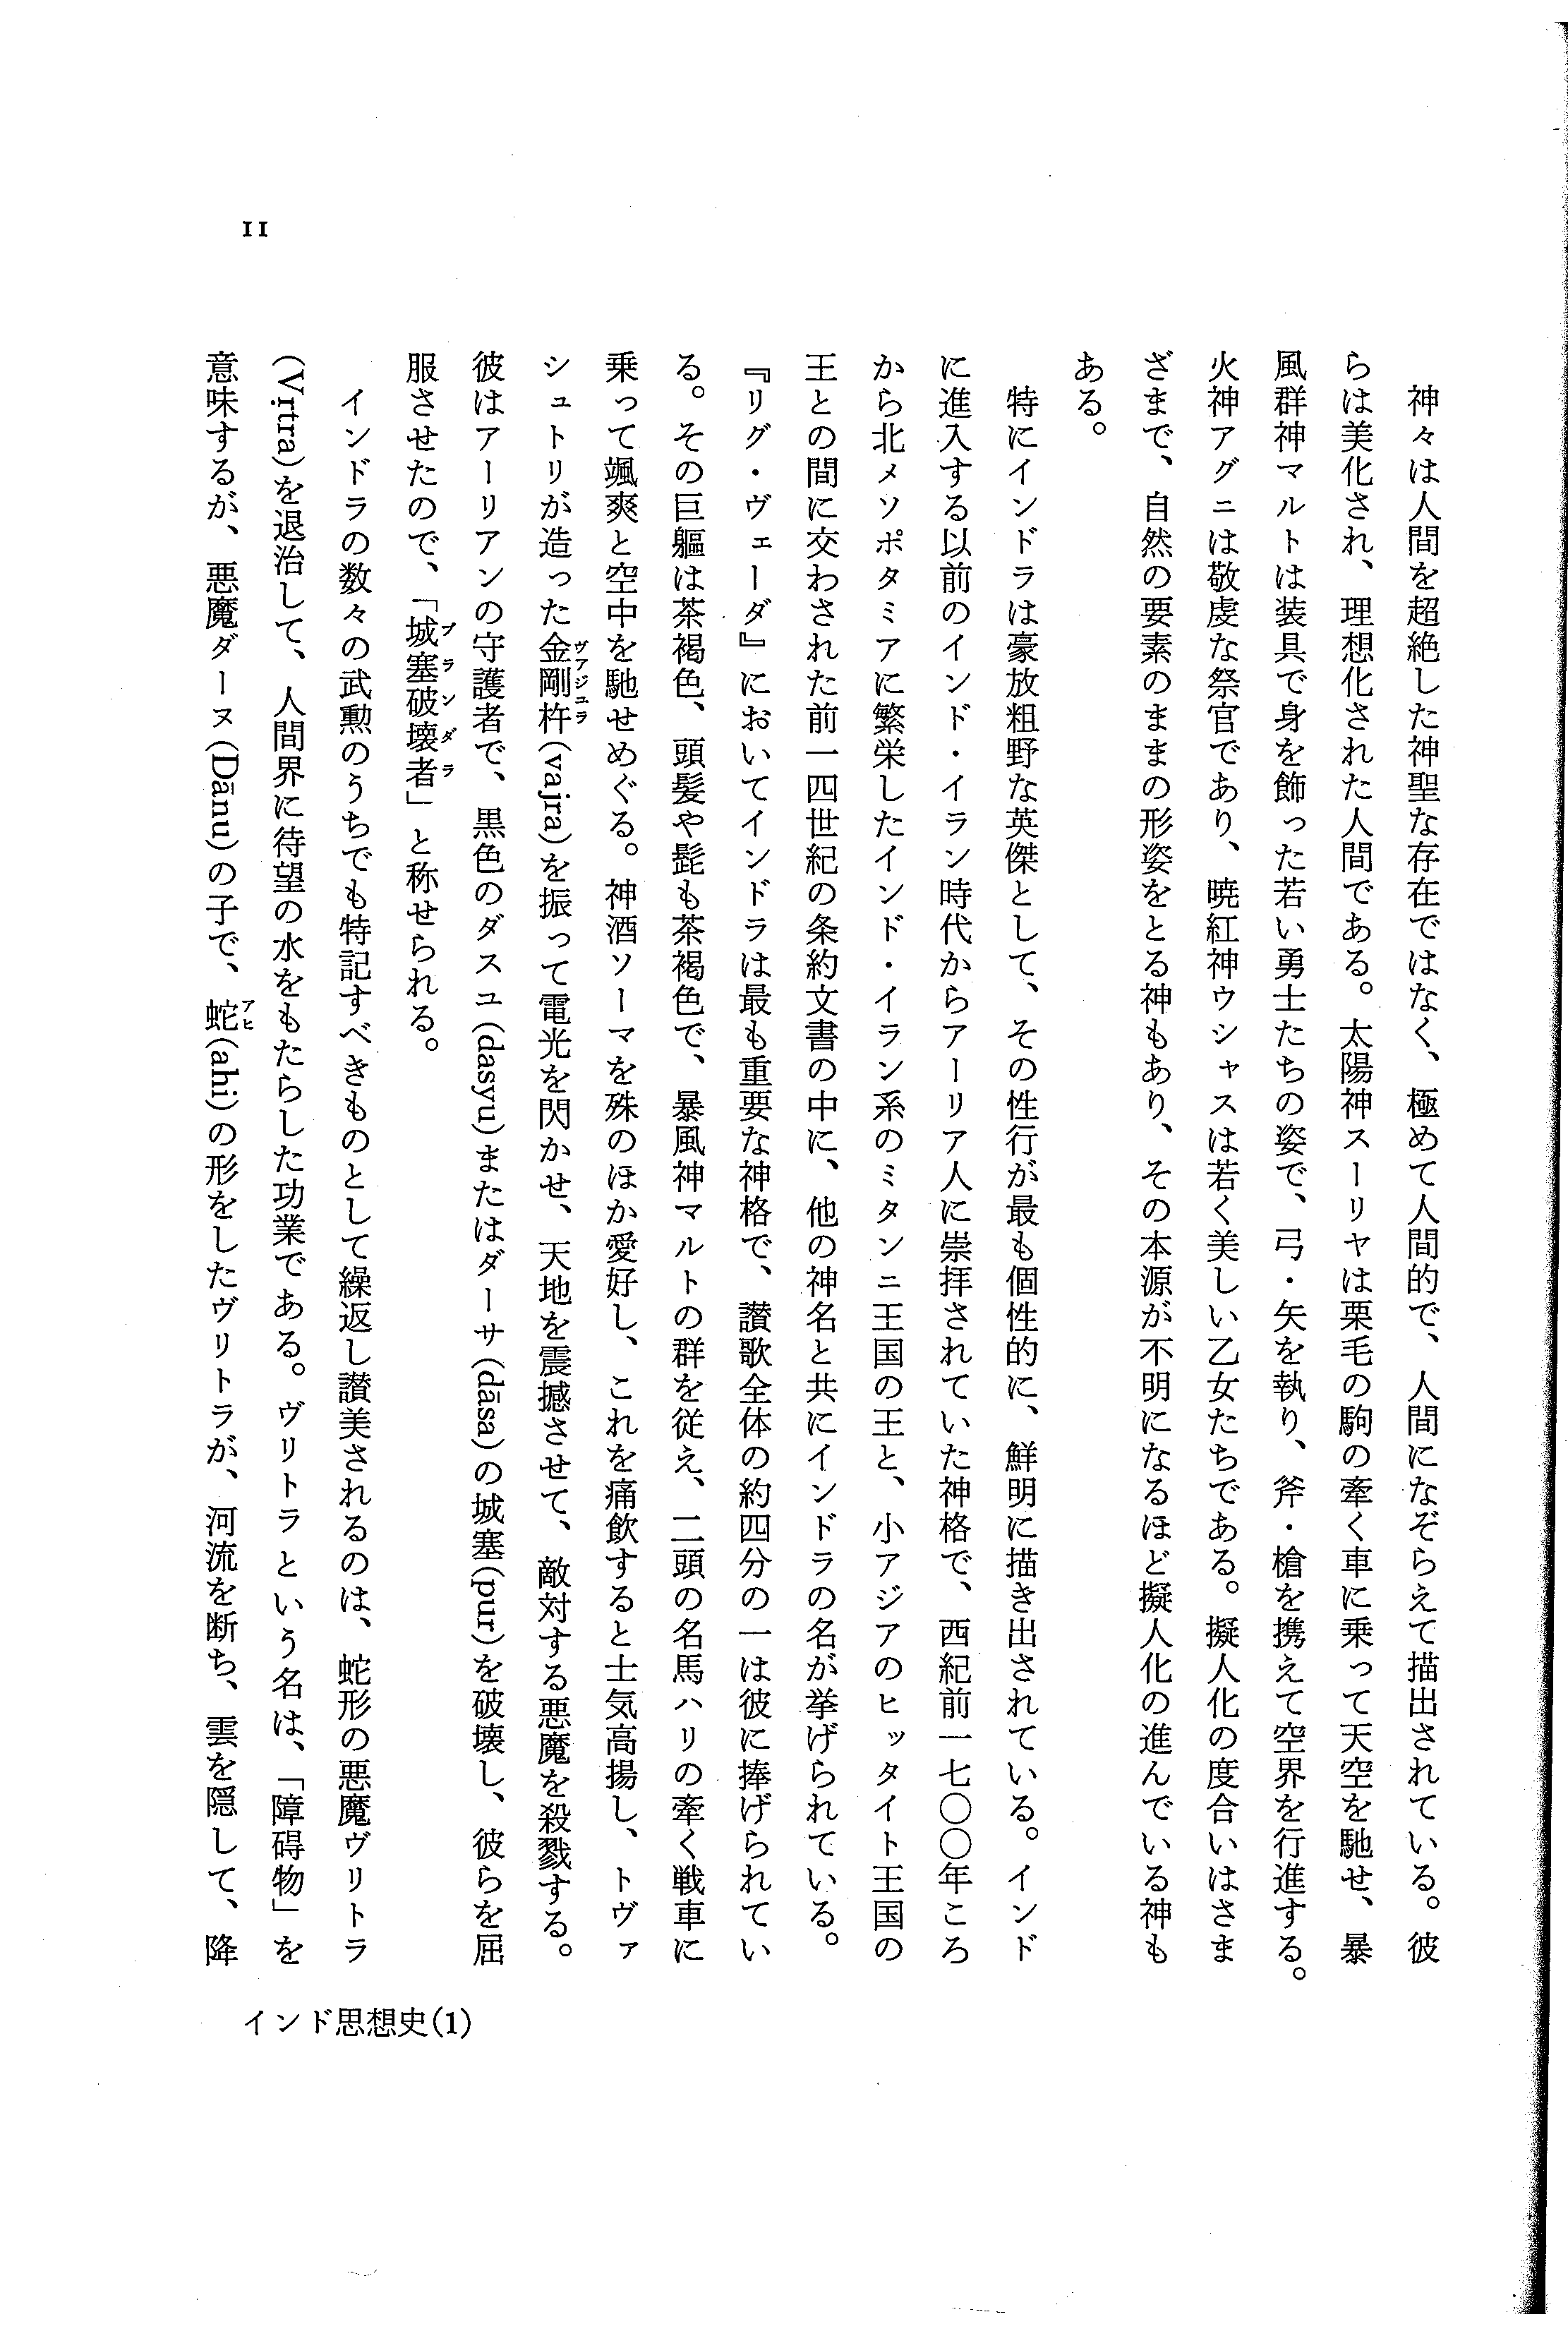 11
神々は人間を超絶した神聖な存在ではなく、極めて人間的で、人間になぞらえて描出されている。彼
らは美化され、理想化された人間である。太陽神スーリヤは栗毛の駒の牽く車に乗って天空を馳せ、暴
風群神マルトは装具で身を飾った若い勇士たちの姿で、弓・矢を執り、斧・槍を携えて空界を行進する。
火神アグニは敬虔な祭官であり、暁紅神ウシャスは若く美しい乙女たちである。擬人化の度合いはさま
ざまで、自然の要素のままの形姿をとる神もあり、その本源が不明になるほど擬人化の進んでいる神も
ある。
特にインドラは豪放粗野な英傑として、その性行が最も個性的に、鮮明に描き出されている。インド
に進入する以前のインド・イラン時代からアーリア人に崇拝されていた神格で、西紀前一七〇〇年ころ
から北メソポタミアに繁栄したインド・イラン系のミタンニ王国の王と、小アジアのヒッタイト王国の
王との間に交わされた前一四世紀の条約文書の中に、他の神名と共にインドラの名が挙げられている。
『リグ・ヴェーダ』においてインドラは最も重要な神格で、讃歌全体の約四分の一は彼に捧げられてい
る。その巨軀は茶褐色、頭髪や髭も茶褐色で、暴風神マルトの群を従え、二頭の名馬ハリの牽く戦車に
乗って颯爽と空中を馳せめぐる。神酒ソーマを殊のほか愛好し、これを痛飲すると士気高揚し、トヴァ
シュトリが造った金剛杵ヴァジュラ(vajra)を振って電光を閃かせ、天地を震撼させて、敵対する悪魔を殺戮する。
彼はアーリアンの守護者で、黒色のダスユ(dasyu)またはダーサ(dāsa)の城塞(pur)を破壊し、彼らを屈
服させたので、「城塞破壊者プランダラ」と称せられる。
インドラの数々の武勲のうちでも特記すべきものとして繰返し讃美されるのは、蛇形の悪魔ヴリトラ
(Vṛtra)を退治して、人間界に待望の水をもたらした功業である。ヴリトラという名は、「障碍物」を
意味するが、悪魔ダーヌ(Dānu)の子で、蛇アヒ(ahi)の形をしたヴリトラが、河流を断ち、雲を隠して、降
インド思想史(1)